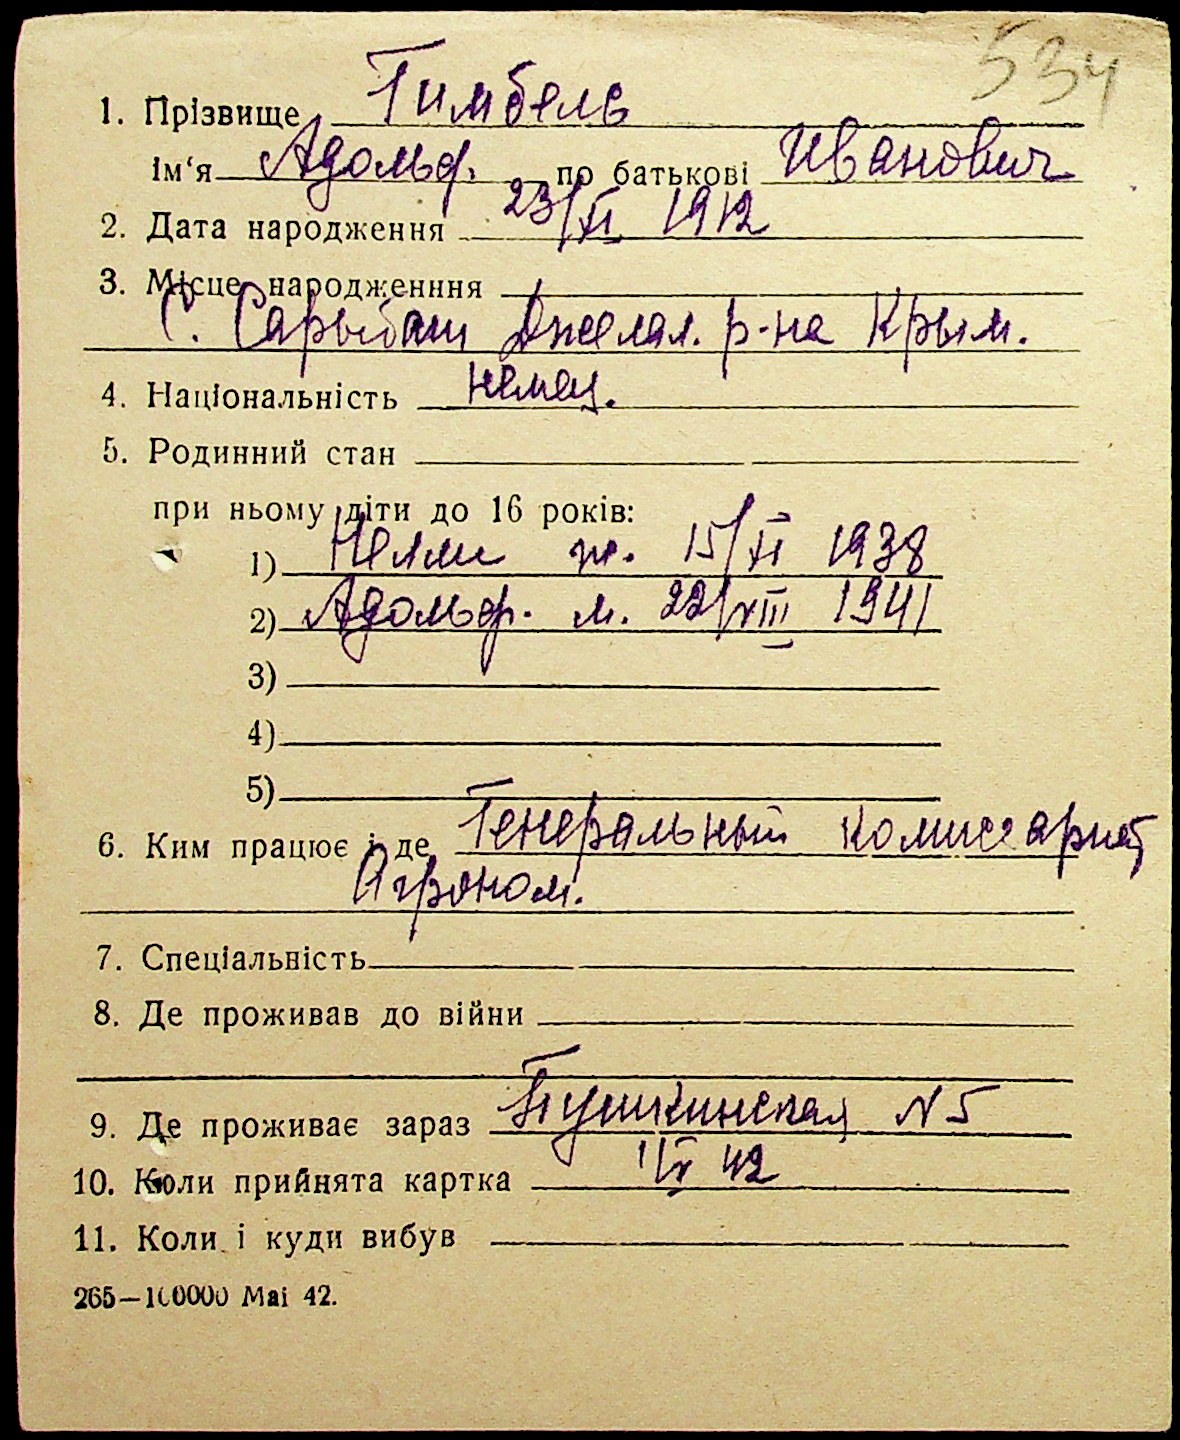 534
1. Прізвище Гимбель
ім'я Адольф. по батькові Иванович
2. Дата народження 23/XI 1912
3. Місце народженння
С. Сарыбаш Джелал. р-на Крым.
4. Національність немец.
5. Родинний стан
при ньому діти до 16 років:
1) Нелли ж. 15/XI 1938
2) Адольф. м. 22/VIII 1941
3)
4)
5)
6. Ким працює і де Генеральный комиссариат
Агроном.
7. Спеціальність
8. Де проживав до війни
9. Де проживає зараз Пушкинская N 5
10. Коли прийнята картка 42
11. Коли і куди вибув
265—100000 Mai 42.